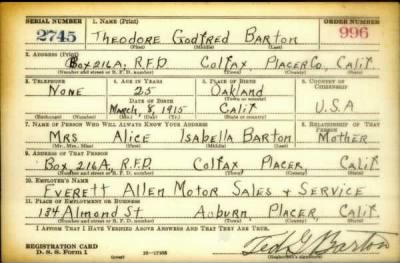 SERIAL NUMBER 1. NAME (Print) ORDER NUMBER
2745 Theodore Godfred Barton 996
(First) (Middle) (Last)
2. ADDRESS (Print)
Box 216A, R.F.D. Colfax, Placer Co, Calif.
(Number and street or R. F. D. number) (Town) (County) (State)
3. TELEPHONE 4. AGE IN YEARS 5. PLACE OF BIRTH 6. COUNTRY OF CITIZENSHIP
None 25 Oakland
DATE OF BIRTH (Town or county)
March, 8, 1915 Calif U.S.A
(Exchange) (Number) (Mo.) (Day) (Yr.) (State or country)
7. NAME OF PERSON WHO WILL ALWAYS KNOW YOUR ADDRESS 8. RELATIONSHIP OF THAT PERSON
Mrs Alice Isabella Barton Mother
(Mr., Mrs., Miss) (First) (Middle) (Last)
9. ADDRESS OF THAT PERSON
Box, 216A, R.F.D. Colfax Placer, Calif
(Number and street or R. F. D. number) (Town) (County) (State)
10. EMPLOYER'S NAME
Everett Allen Motor Sales & Service
11. PLACE OF EMPLOYMENT OR BUSINESS
134 Almond St Auburn, Placer, Calif
(Number and street or R. F. D. number) (Town) (County) (State)
I AFFIRM THAT I HAVE VERIFIED ABOVE ANSWERS AND THAT THEY ARE TRUE.
REGISTRATION CARD
D. S. S. Form 1 (over) 16-17105 Ted G Barton
(Registrant's signature)